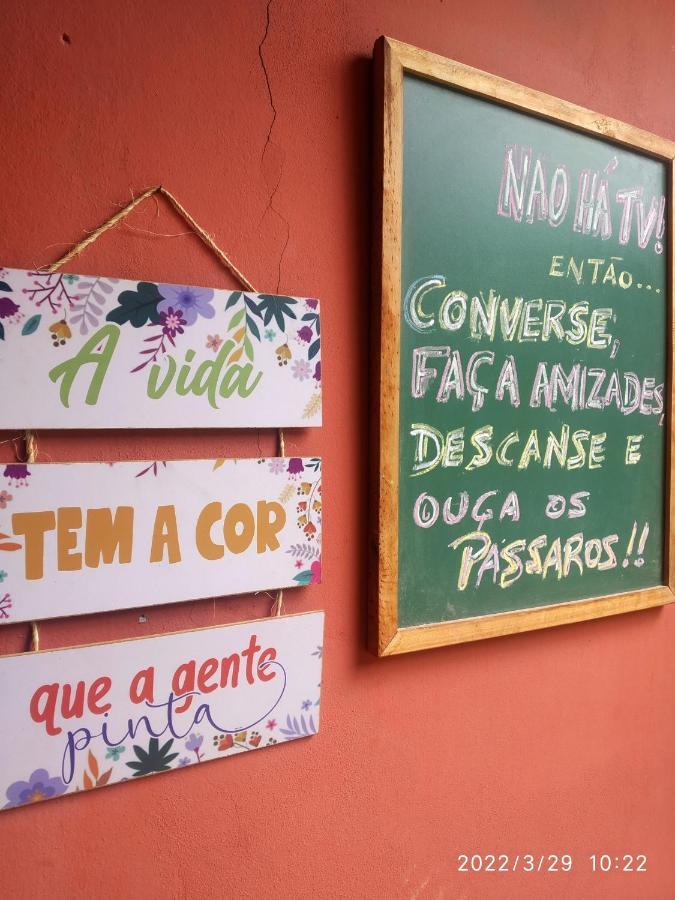 A vida
TEM A COR
que a gente
pinta
NÃO HÁ TV!
ENTÃO...
CONVERSE,
FAÇA AMIZADES,
DESCANSE E
OUÇA OS
PASSAROS!!
2022/3/29 10:22